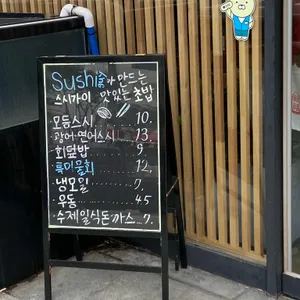 Sushi 쿡이 만드는
스시가이 맛있는 초밥
모듬스시 ... 10.
광어·연어스시 ... 13.
회덮밥 ... 9.
특미물회 ... 12.
냉모밀 ... 7.
우동 ... 4.5
수제일식돈까스 ... 7.